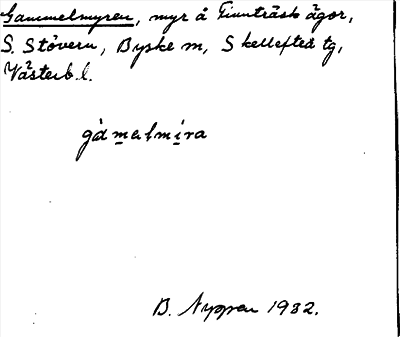 Gammelmyren, myr å Finnträsk ägor,
S. Stövern, Byske sn, Skellefteå tg,
Västerb. l.
gàmɐlmira
B. Nyppen 1932.